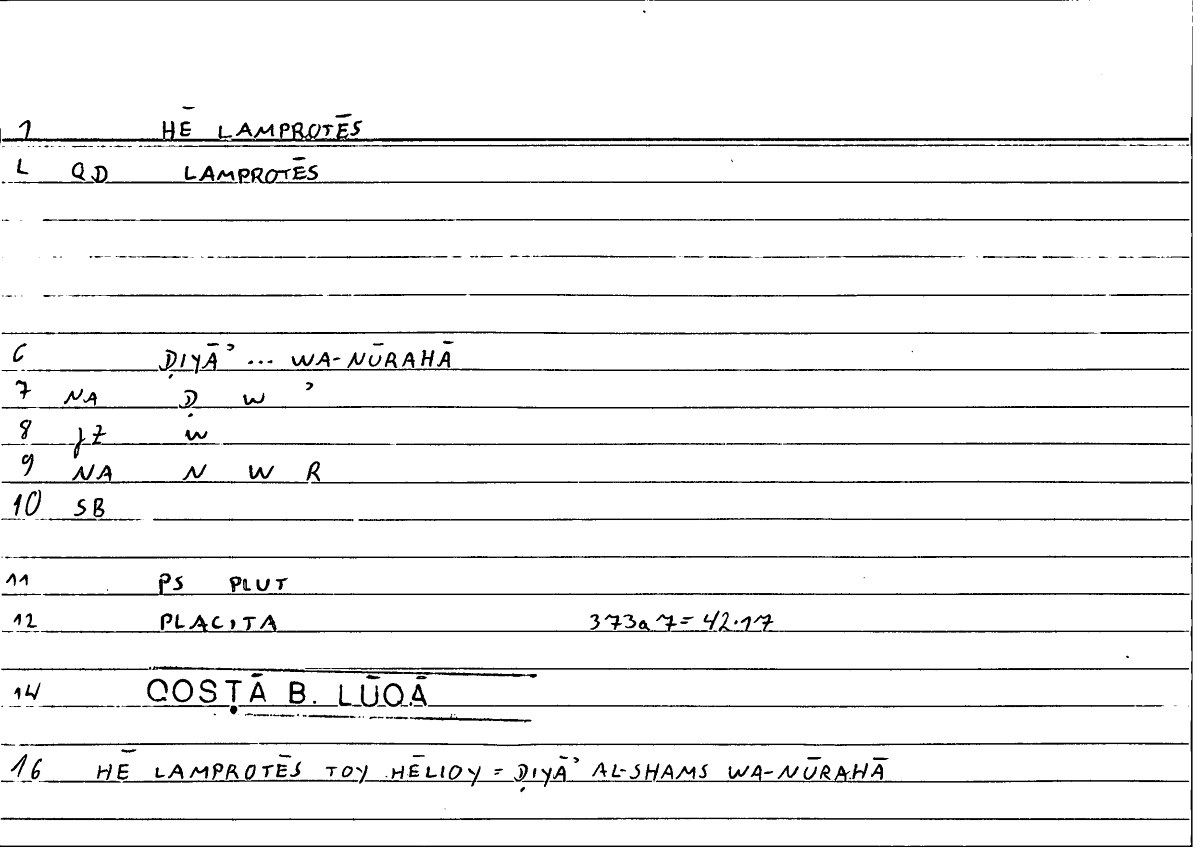 1 HĒ LAMPROTĒS
L QD LAMPROTĒS
6 ḌIYĀʾ ... WA-NŪRAHĀ
7 NA Ḍ W ʾ
8 JZ W
9 NA N W R
10 SB
11 PS PLUT
12 PLACITA 373a7=42.17
14 QOSṬĀ B. LŪQĀ
16 HĒ LAMPROTĒS TOY HĒLIOY = ḌIYĀʾ AL-SHAMS WA-NŪRAHĀ